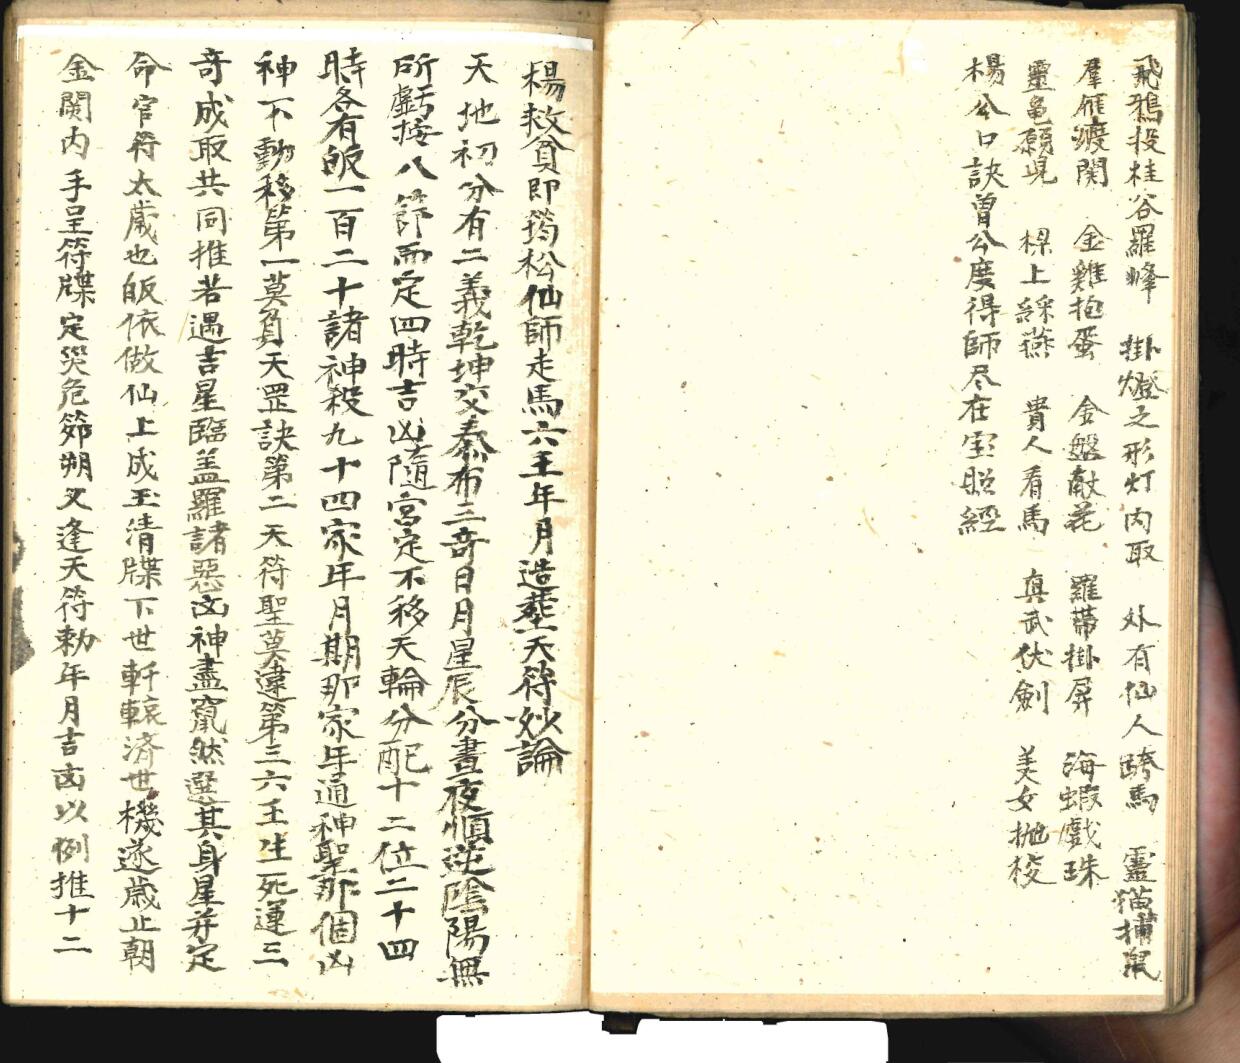 飛鵝投桂谷羅峰　掛燈之形灯内取　外有仙人跨馬　靈猫捕鼠
羣雁渡関　金雞抱蛋　金盤献花　羅帶掛屏　海蝦戲珠
靈亀顧児　樑上綵燕　貴人看馬　真武伏劍　美女抛梭
楊公口訣曾公度得師尽在宝照經
楊救貧即筠松仙師走馬六壬年月造塟天符妙論
天地初分有二義乾坤交泰布三奇日月星辰分晝夜順逆陰陽無
所虧按八節而定四時吉凶隨宮定不移天輪分配十二位二十四
時各有皈一百二十諸神殺九十四家年月期那家年通神聖那個凶
神不動移第一莫負天罡訣第二天符聖莫違第三六壬生死運三
奇成取共同推若遇吉星臨盖羅諸惡凶神盡竄然選其身星并定
命官符太歲也皈依做仙上成玉清牒下世軒轅済世機逐歲止朝
金闕内手呈符牒定災危節朔又逢天符勅年月吉凶以例推十二